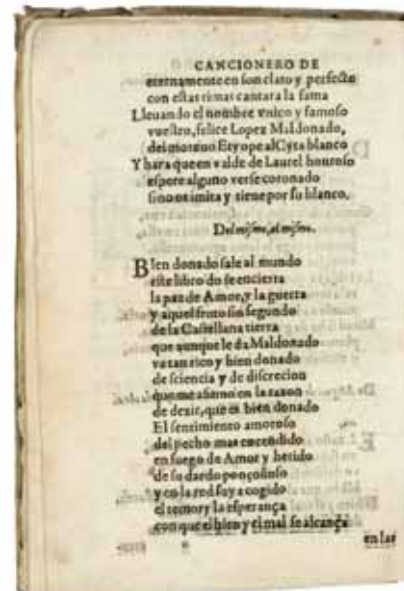 CANCIONERO DE
eternamente en son claro y perfecto
con estas rimas cantara la fama
Lleuando el nombre vnico y famoso
vuestro, felice Lopez Maldonado,
del moreno Etyope al Cyta blanco
Y hara que en valde de Laurel honroso
espere alguno verse coronado
sino os imita y tiene por su blanco.
Del mismo, al mismo.
Bien donado sale al mundo
este libro do se encierra
la paz de Amor, y la guerra
y aquel fruto sin segundo
de la Castellana tierra
que aunque le da Maldonado
va tan rico y bien donado
de sciencia y de discrecion
que me afirmo en la razon
de dezir, que es bien donado
El sentimiento amoroso
del pecho mas encendido
en fuego de Amor y herido
de su dardo ponçoñoso
y en la red soy a cogido
el temor y la esperança
con que el bien y el mal se alcança
en las